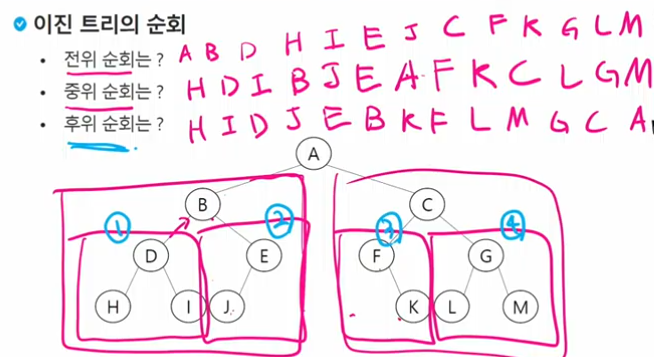 이진 트리의 순회
• 전위 순회는 ? A B D H I E J C F K G L M
• 중위 순회는 ? H D I B J E A F K C L G M
• 후위 순회는 ? H I D J E B K F L M G C A
A
B C
① ② ③ ④
D E F G
H I J K L M